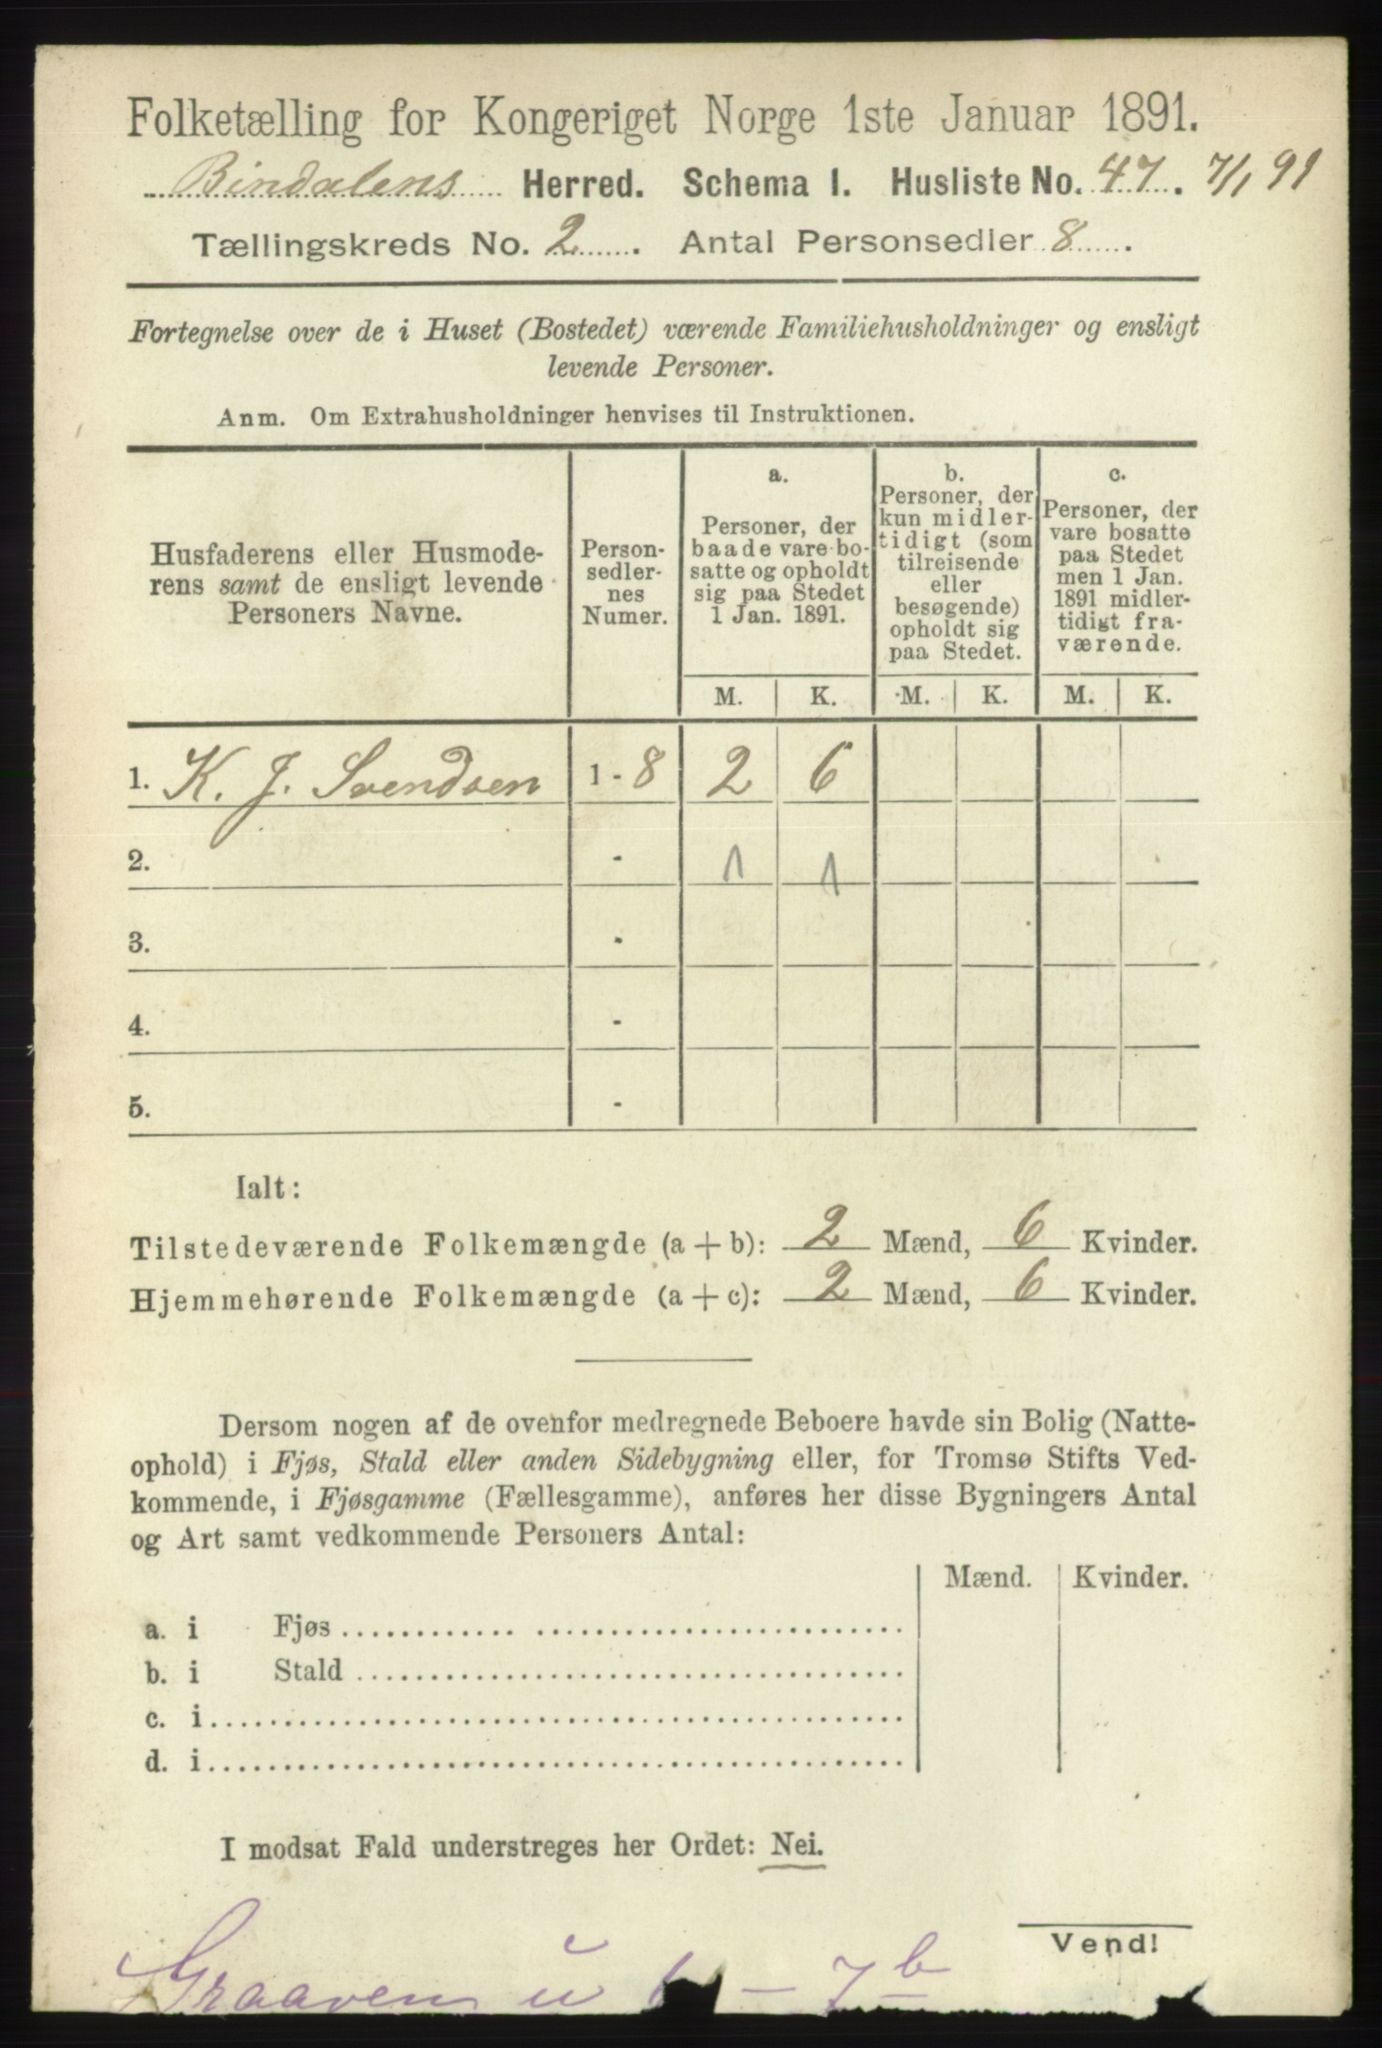 Folketælling for Kongeriget Norge 1ste Januar 1891.
Bindalens Herred. Schema I. Husliste No. 47. 7/1 91
Tællingskreds No. 2. Antal Personsedler 8.
Fortegnelse over de i Huset (Bostedet) værende Familiehusholdninger og ensligt
levende Personer.
Anm. Om Extrahusholdninger henvises til Instruktionen.
Husfaderens eller Husmode-
rens samt de ensligt levende
Personers Navne.
Person-
sedler-
nes
Numer.
a.
Personer, der
baade vare bo-
satte og opholdt
sig paa Stedet
1 Jan. 1891.
b.
Personer, der
kun midler-
tidigt (som
tilreisende
eller
besøgende)
opholdt sig
paa Stedet.
c.
Personer, der
vare bosatte
paa Stedet
men 1 Jan.
1891 midler-
tidigt fra-
værende.
M. K. M. K. M. K.
1. K. J. Svendsen 1 - 8 2 6
2. - 1 1
3. -
4. -
5. -
Ialt:
Tilstedeværende Folkemængde (a + b): 2 Mænd, 6 Kvinder.
Hjemmehørende Folkemængde (a + c): 2 Mænd, 6 Kvinder.
Dersom nogen af de ovenfor medregnede Beboere havde sin Bolig (Natte-
ophold) i Fjøs, Stald eller anden Sidebygning eller, for Tromsø Stifts Ved-
kommende, i Fjøsgamme (Fællesgamme), anføres her disse Bygningers Antal
og Art samt vedkommende Personers Antal:
Mænd. Kvinder.
a. i Fjøs
b. i Stald
c. i
d. i
I modsat Fald understreges her Ordet: Nei.
Vend!
Graaven u - 7b